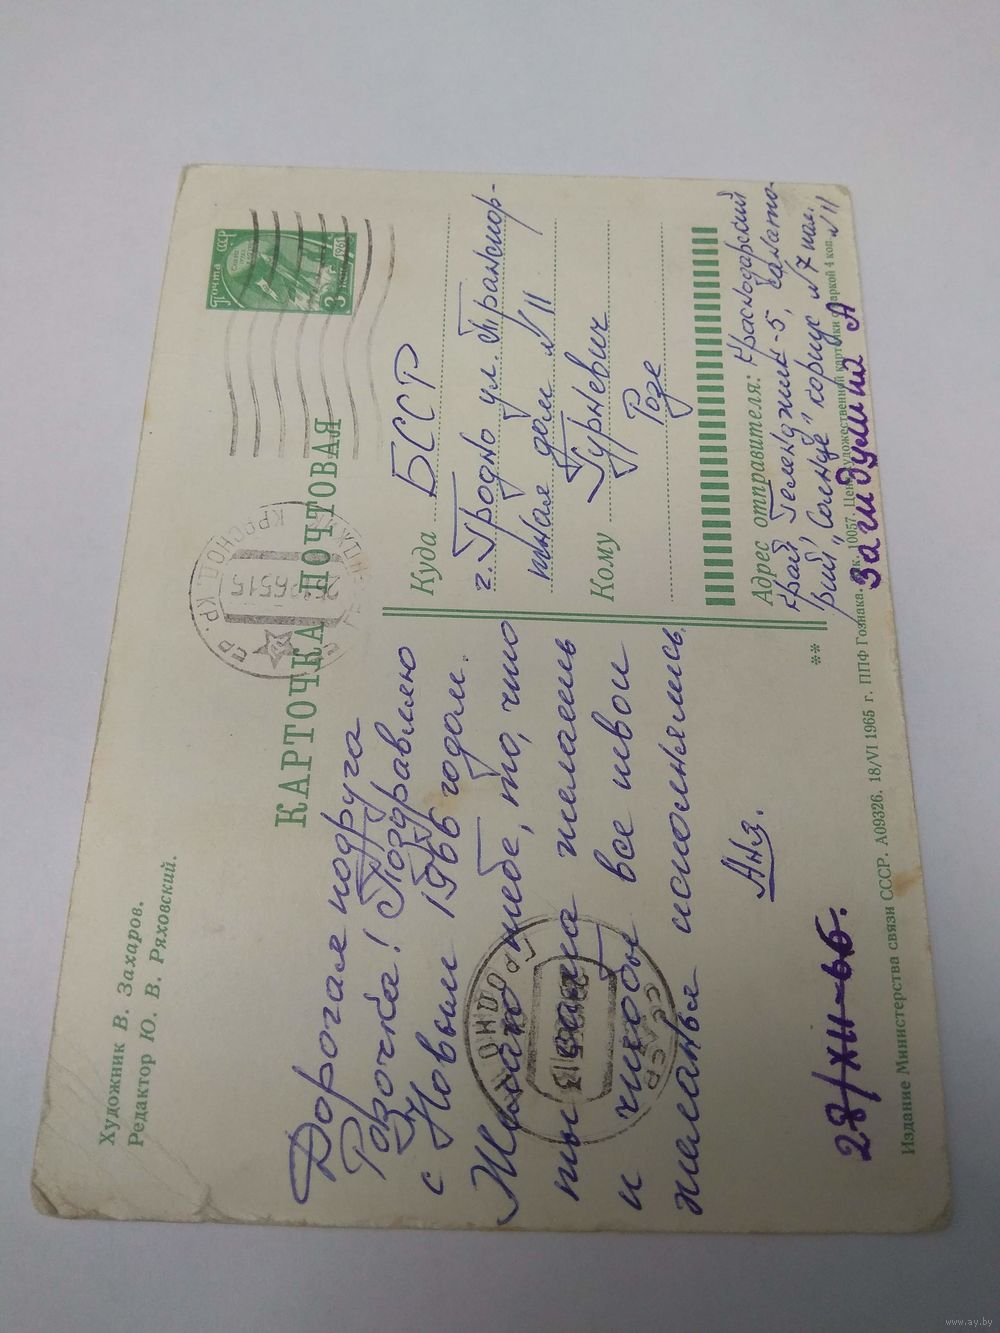 Художник В. Захаров.
Редактор Ю. В. Ряховский.
КАРТОЧКА ПОЧТОВАЯ
Почта СССР
1961
3
Дорогая подруга
Розочка! Поздравляю
с Новым 1966 годом.
Желаю тебе, то, что
ты сама желаешь
и чтобы все твои
желанья исполнялись.
Анз.
28/XII-65.
Куда БССР
г. Гродно ул. Транспор-
тная дом №11
Кому Гурневич
Розе
Адрес отправителя: Краснодарский
край Геленджик-5, санато-
рий "Солнце" корпус №7 пал. №11
Загидулина А
**
Издание Министерства связи СССР. А09326. 18/VI 1965 г. ППФ Гознака. Зак. 10057. Цена художественной карточки с маркой 4 коп.
ГРОДНО
БССР
КРАСНОД. КР.
www.ay.by